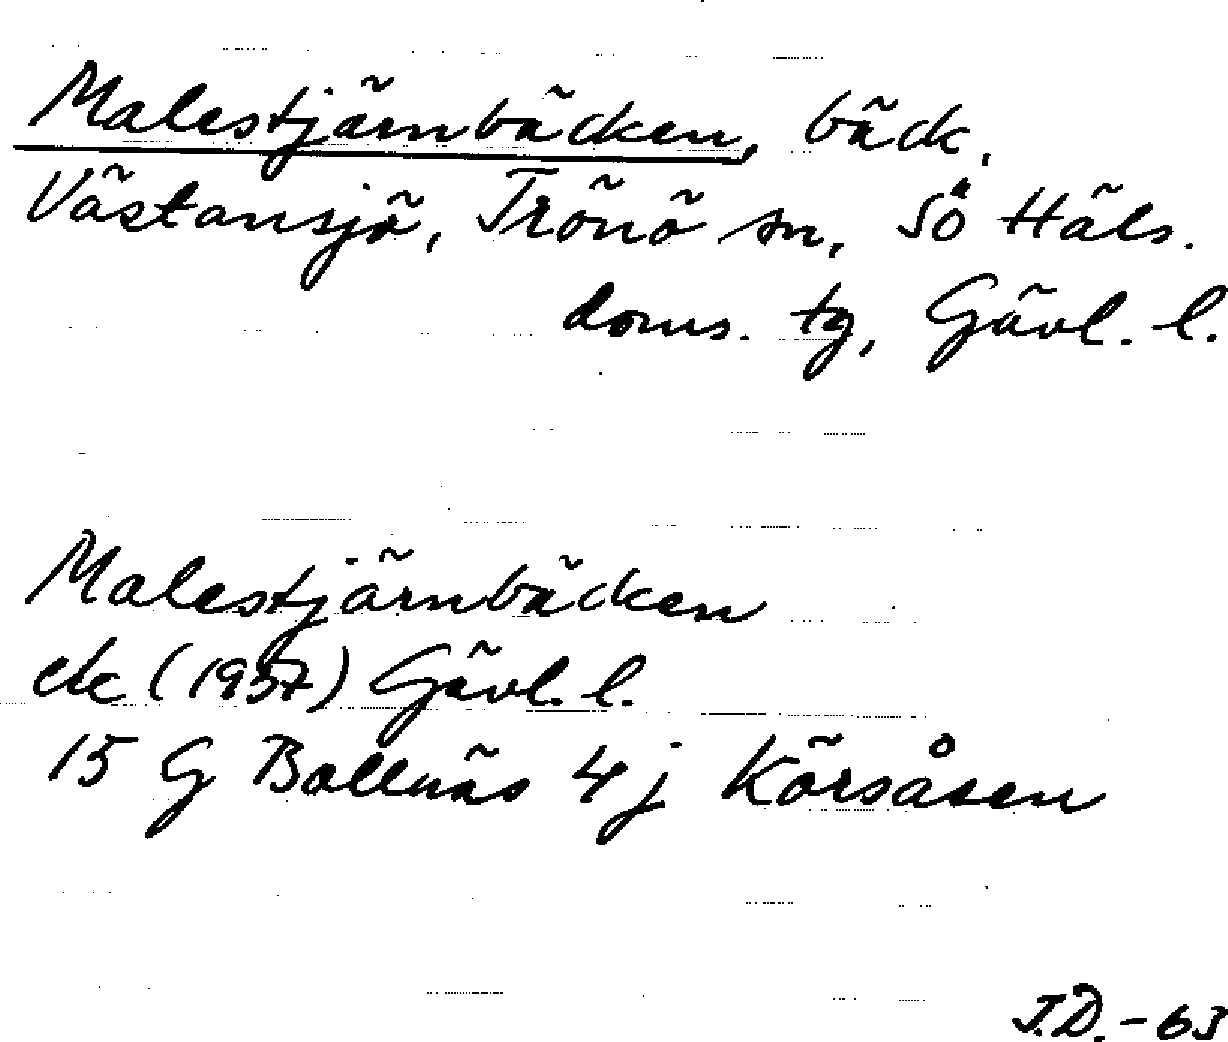 Malestjärnbäcken, bäck,
Västansjö, Trönö sn, Sö Häls.
doms. tg, Gävl. l.
Malestjärnbäcken
ek (1957) Gävl. l.
15 G Bollnäs 4 j Körsåsen
J.D. -63